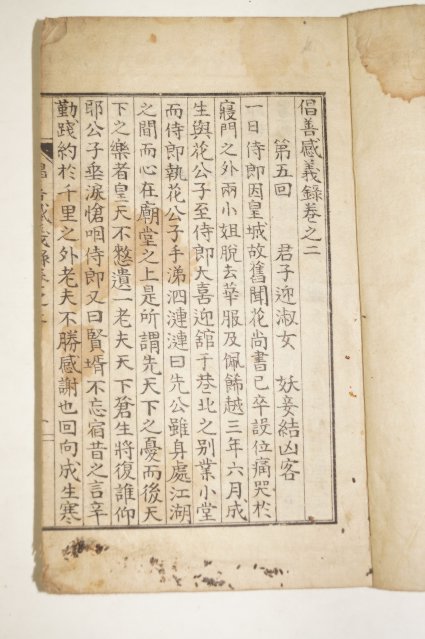 倡善感義錄卷之二
第五回 君子迎淑女 妖妾結凶客
一日侍郎因皇城故舊聞花尚書已卒設位痛哭於
寢門之外兩小姐脫去華服及佩餙越三年六月成
生與花公子至侍郎大喜迎舘于巷北之别業小堂
而侍郎執花公子手涕泗漣漣曰先公雖身處江湖
之間而心在廟堂之上是所謂先天下之憂而後天
下之樂者皇天不憗遺一老夫天下蒼生將復誰仰
耶公子垂淚愴咽侍郎又曰賢壻不忘宿昔之言辛
勤踐約於千里之外老夫不勝感謝也回向成生寒